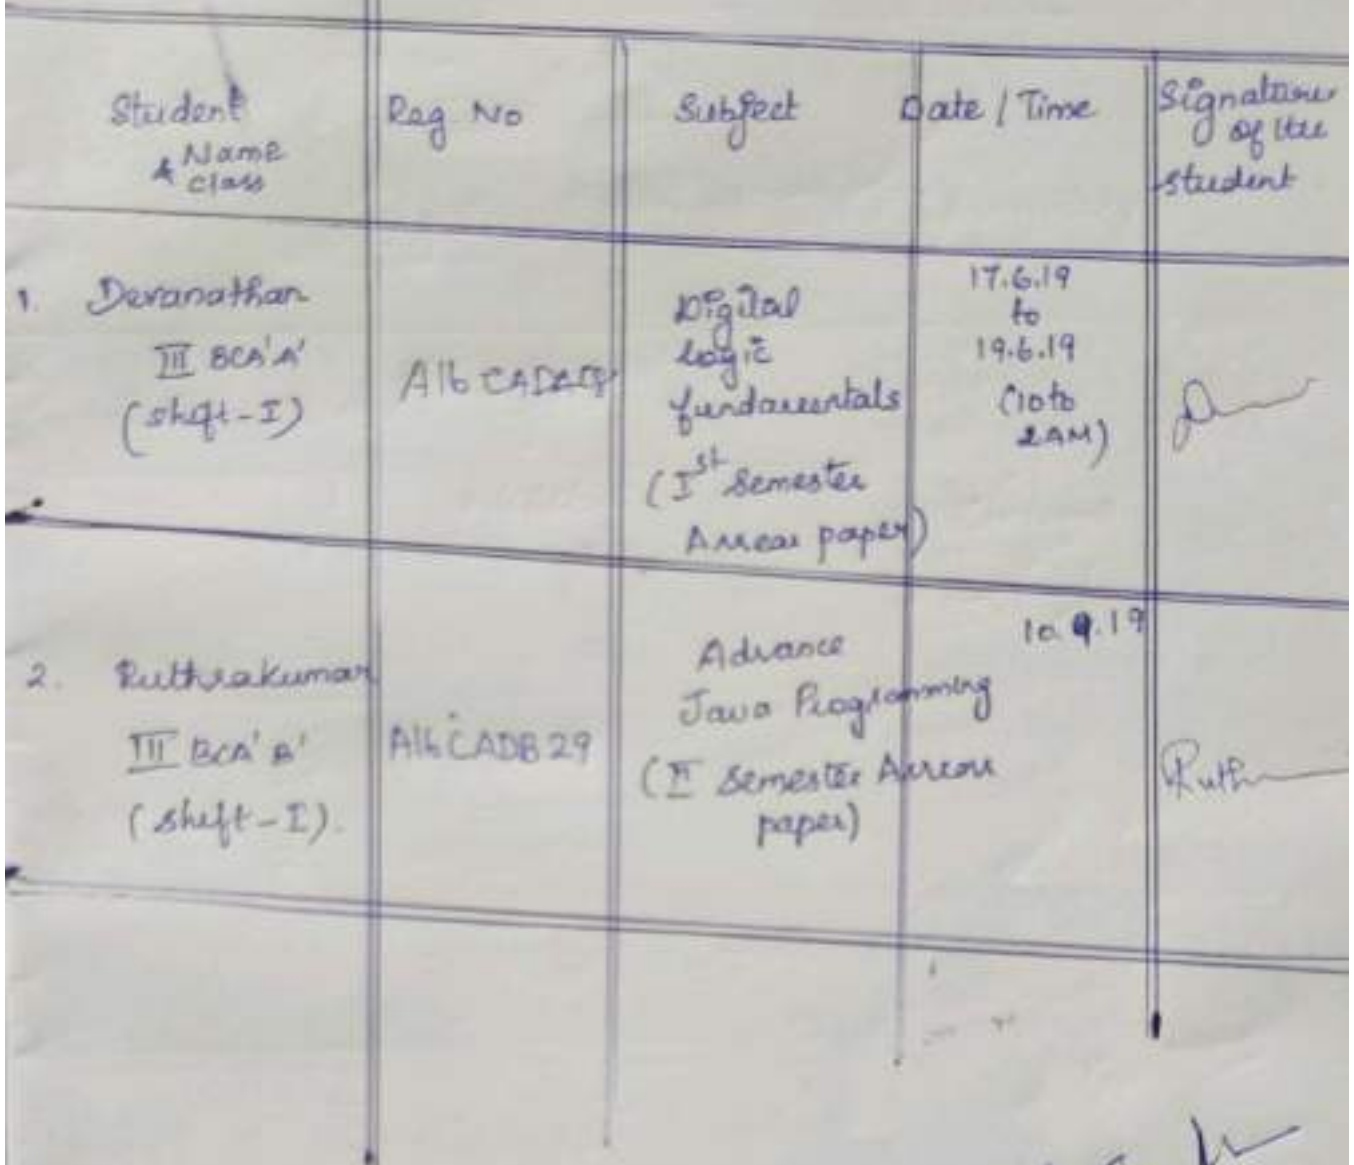 Student
& Name
class
Reg No
Subject
Date / Time
Signature
of the
student
1. Devanathan
III BCA 'A'
(shift - I)
Digital
logic
fundamentals
(Ist Semester
Arrear paper)
17.6.19
to
19.6.19
(10 to
2AM)
2. Ruthrakumar
III BCA 'B'
(shift - I).
A16CADB29
Advance
Java Programming
(II Semester Arrear
paper)
10.9.19
Ruth